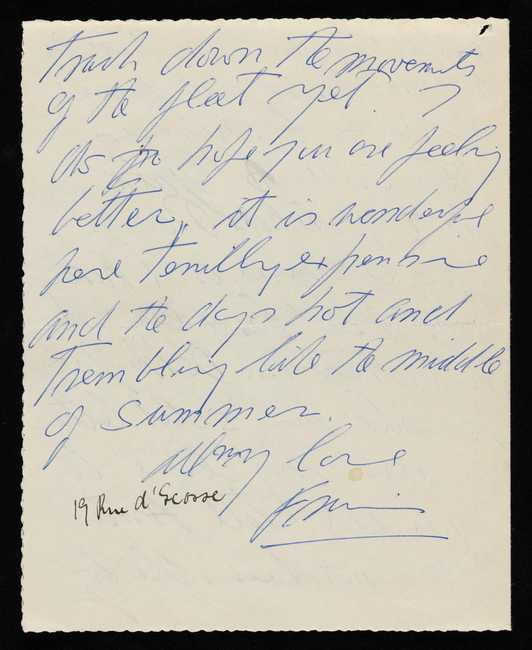 track down the movements
of the fleet yet
do hope you are feeling
better, it is wonderful
here terribly expensive
and the days hot and
trembling like the middle
of summer.
All my love
19 Rue d'Ecosse